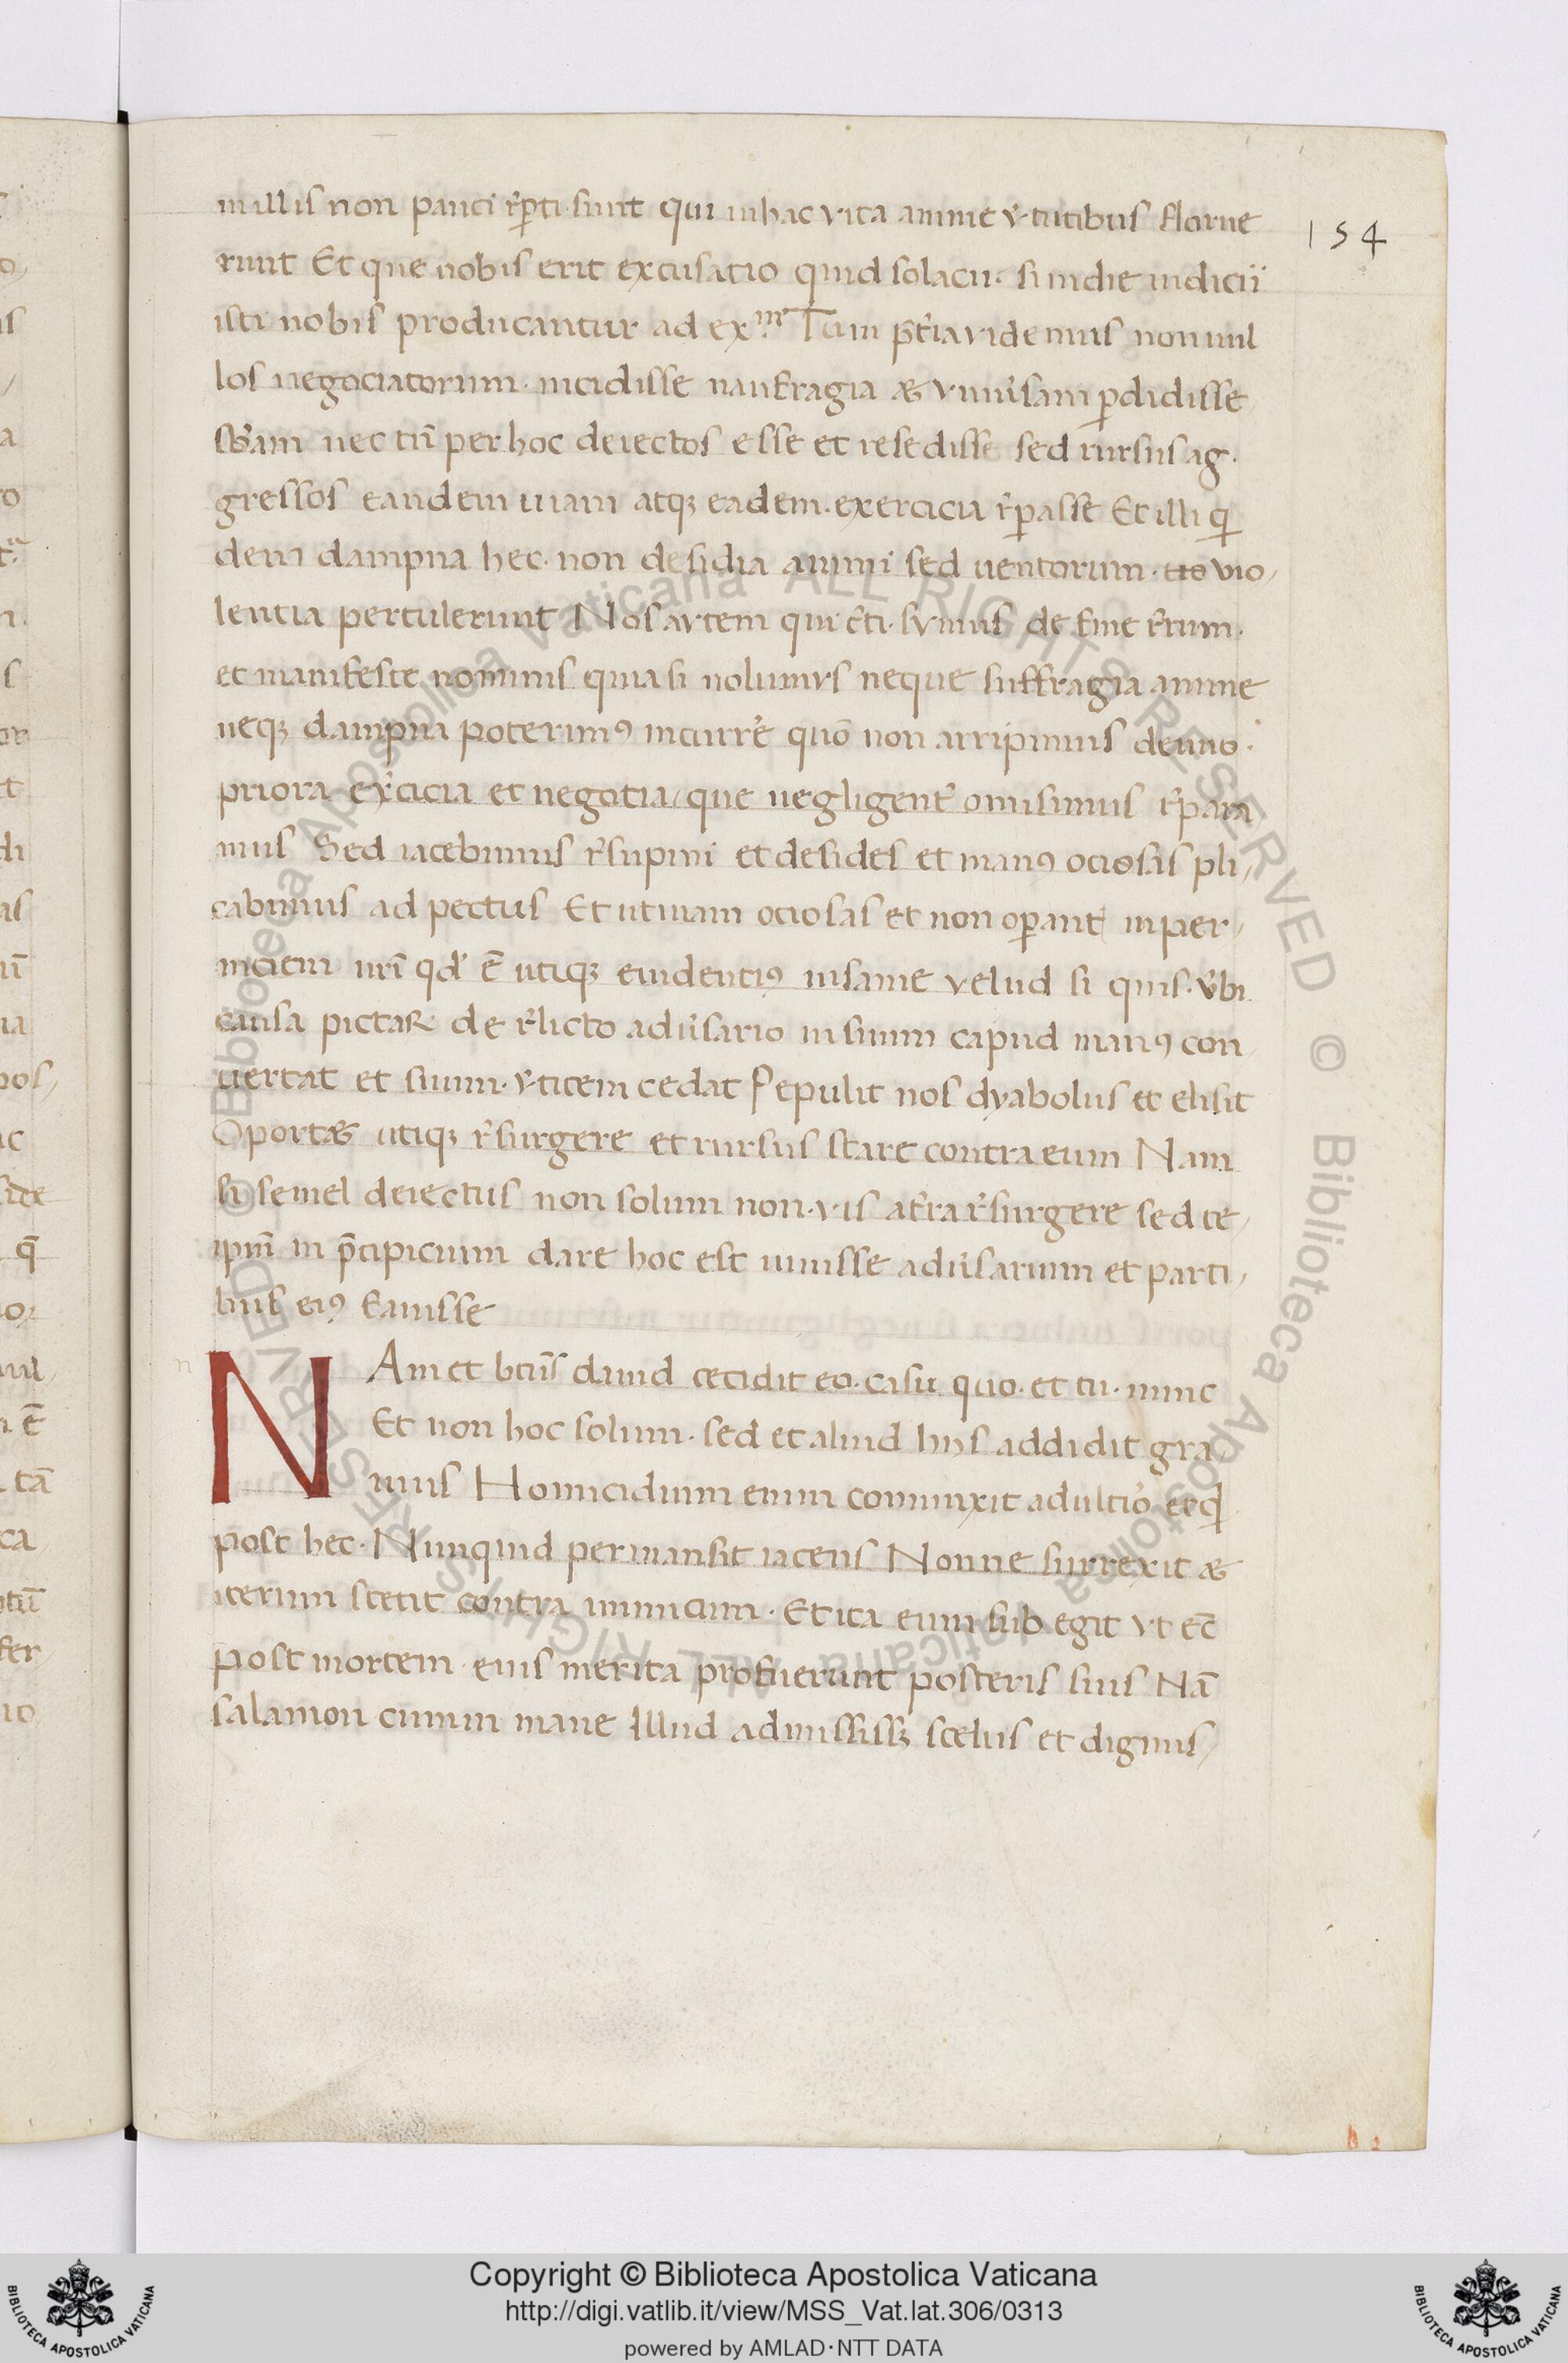 in illis non pauci r̃ꝑti·sunt qui in hac vita anime v̾·tutibus florue
runt Et que nobis erit excusatio quid solacii· si in die iudicii
isti nobis producantur ad exᵐ. Tum p̃t̾ia videmus non nul
los negociatorum· incidisse naufragia & vniu̾sam ꝑdidisse
sb̾am nec tñ per hoc deiectos esse et resedisse sed rursus ag·
gressos eandem uiam atqꝫ eadem·exercicia r̾ꝑasse Et illi qi
dem dampna hec· non desidia animi sed uentorum· uio,
lentia pertulerunt Nos avtem qui c̾ti·svmus de fine r̾rum·
et manifeste nouimus quia si nolumvs neque suffragia anime
neqꝫ dampna poterimꝰ incurre̾ quõ non arripimus denuo·
priora ex̾cicia et negotia, que negligent̾ omisimus r̾para
mus Sed iacebimus r̾supini et desides et manꝰ ociosas pli,
cabimus ad pectus Et utinam ociosas et non oꝑant in per,
niciem nr̃i qd̾ ẽ utiqꝫ euidentiꝰ insanie velud si quis·v̾bi
causa pictaꝝ de r̾licto adu̾sario in suum capud manꝰ con
uertat et suum·v̾·ticem cedat Pepulit nos dyabolus et elisit
Oport& utiqꝫ r̾surgere et rursus stare contra eum Nam
si semel deiectus non solum non·vis at̾ra r̾surgere sed te,
ipm̃ in p̃cipicium dare hoc est iuuisse adu̾sarium et parti,
bus eiꝰ fauisse
NAm et bt̃us dauid cecidit eo·casu quo·et tu·nunc
Et non hoc solum·sed et aliud hijs addidit gra
uius Homicidium enim coniunxit adultio̾ et qd
post hec·Nunquid permansit iacens Nonne surrexit &
iterum stetit contra inimicum·Et ita eum sub egit vt ec̃
post mortem·eius merita profuerunt posteris suis Nã
salamon·cum in mane illud admississꝫ scelus et dignus,
154
Copyright © Biblioteca Apostolica Vaticana
http://digi.vatlib.it/view/MSS_Vat.lat.306/0313
powered by AMLAD·NTT DATA